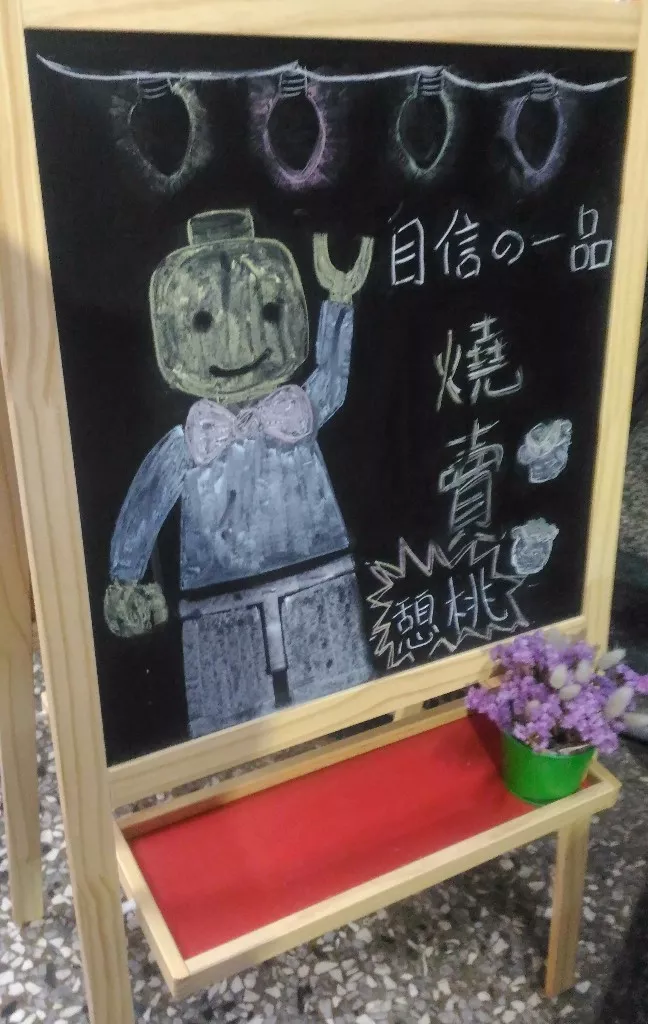 自信の一品
燒
賣
憩桃